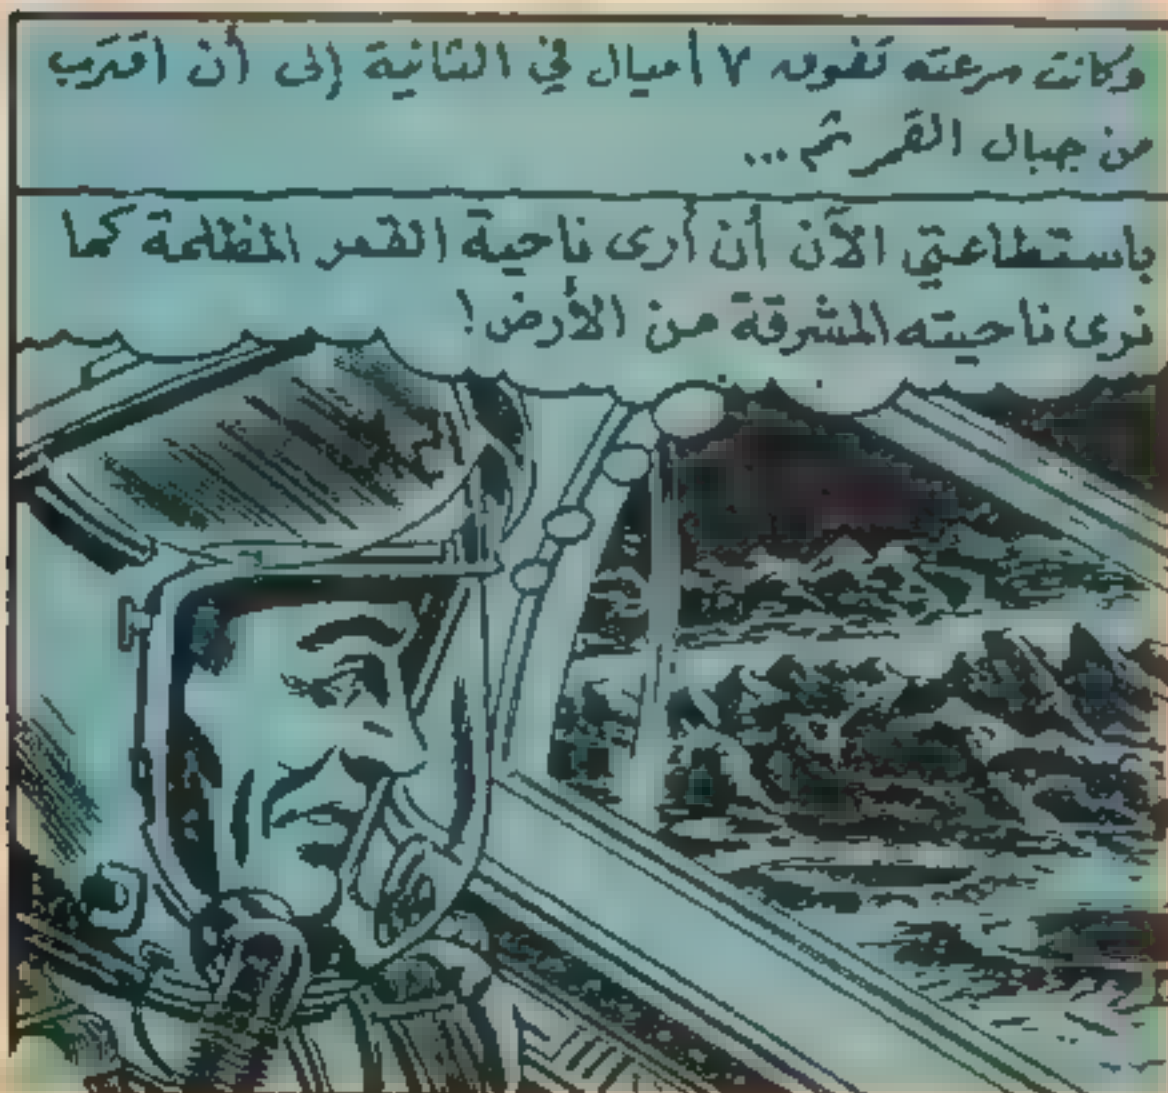 وكانت سرعته تفوق ٧ أميال في الثانية إلى أن اقترب
من جبال القمر ثم...
باستطاعتي الآن أن أرى ناحية القمر المظلمة كما
نرى ناحيته المشرقة من الأرض!